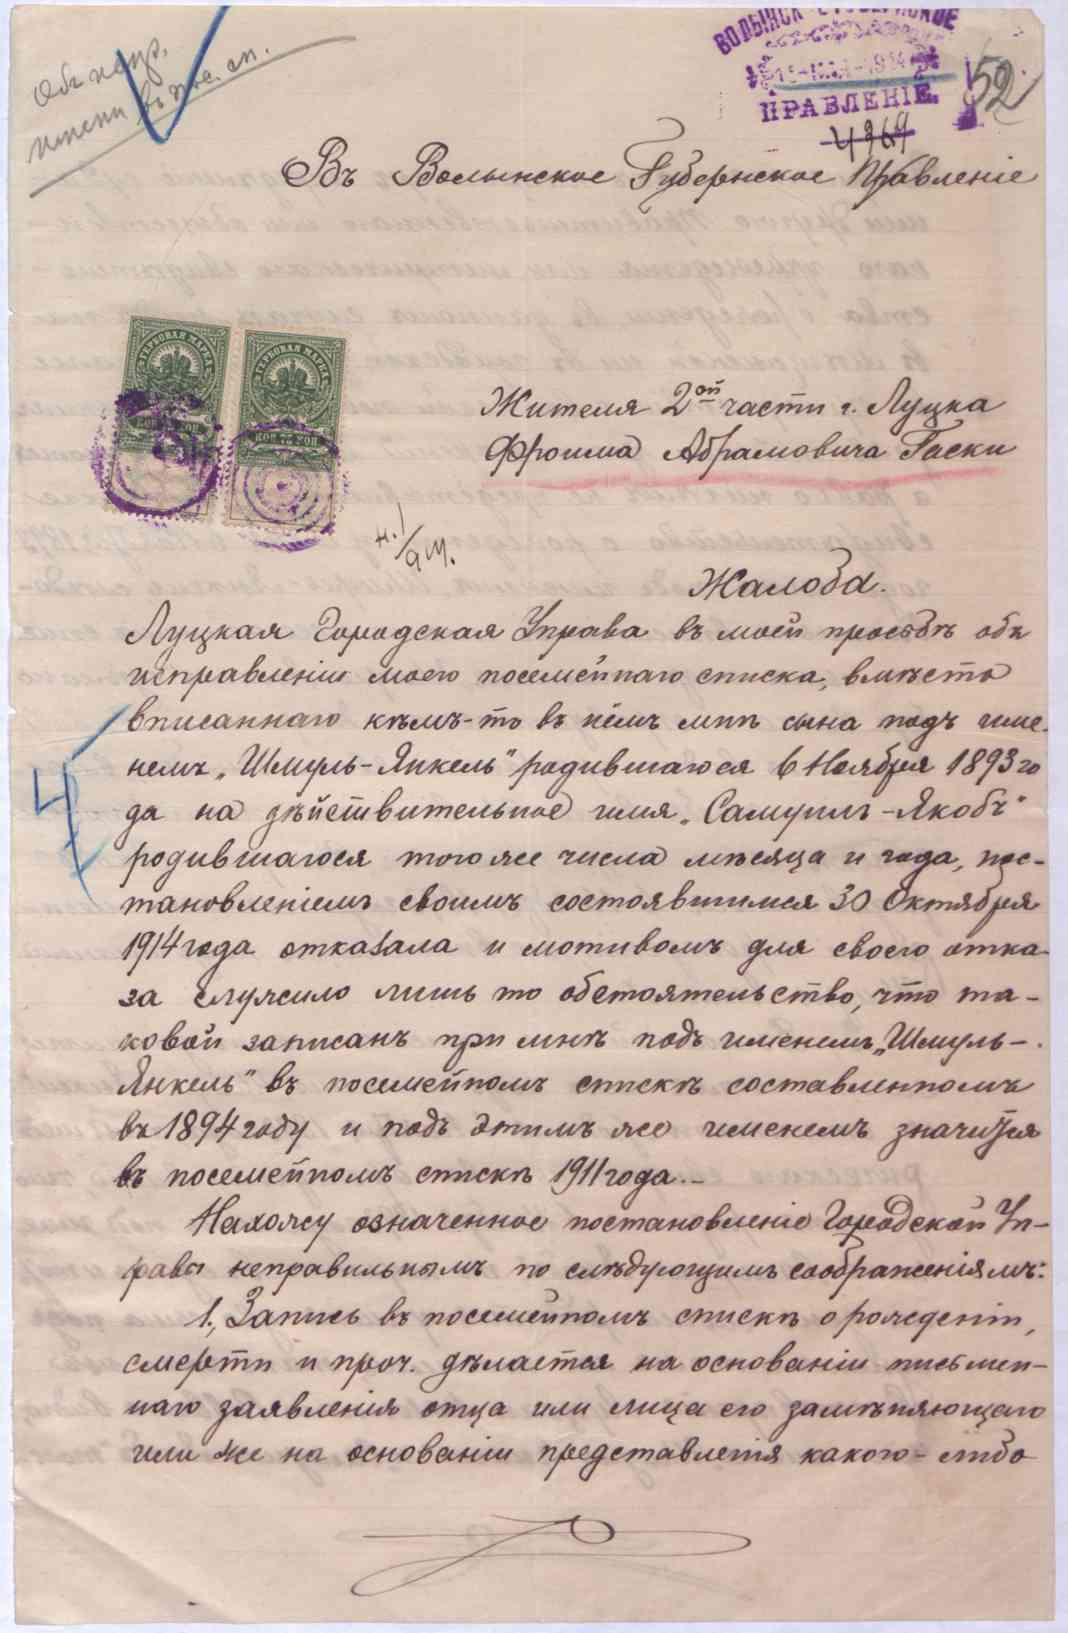 Объ испр.
имени въ пос. сп.
ВОЛЫНСК ГУБЕРНСКОЕ
ПРАВЛЕНІЕ.
52
4369
Въ Волынское Губернское Правленіе
ГЕРБОВАЯ МАРКА
ГЕРБОВАЯ МАРКА
КОП 75 КОП
КОП 75 КОП
Жителя 2ой части г. Луцка
Фроима Абрамовича Гаски
Жалоба.
Луцкая Городская Управа въ моей просьбѣ объ
исправленіи моего посемейнаго списка, вмѣсто
вписаннаго кѣмъ-то въ нёмъ мнѣ сына подъ име-
немъ „Шмуль-Янкель" родившагося 6 Ноября 1893 го
да на дѣйствительное имя „Самуилъ-Якобъ"
родившагося того же числа мѣсяца и года, пос-
тановленіемъ своимъ состоявшимся 30 Октября
1914 года отказала и мотивомъ для своего отка-
за служило лишь то обстоятельство, что та-
ковой записанъ при мнѣ подъ именемъ „Шмуль-
Янкель" въ посемейномъ спискѣ составленномъ
въ 1894 году и подъ этимъ же именемъ значится
въ посемейномъ спискѣ 1911 года.-
Нахожу означенное постановленіе Городской Уп-
равы неправильнымъ по слѣдующимъ соображеніямъ:
1., Запись въ посемейномъ спискѣ о рожденіи,
смерти и проч. дѣлается на основаніи письмен-
наго заявленія отца или лица его замѣняющаго
или же на основаніи представленія какого-либо